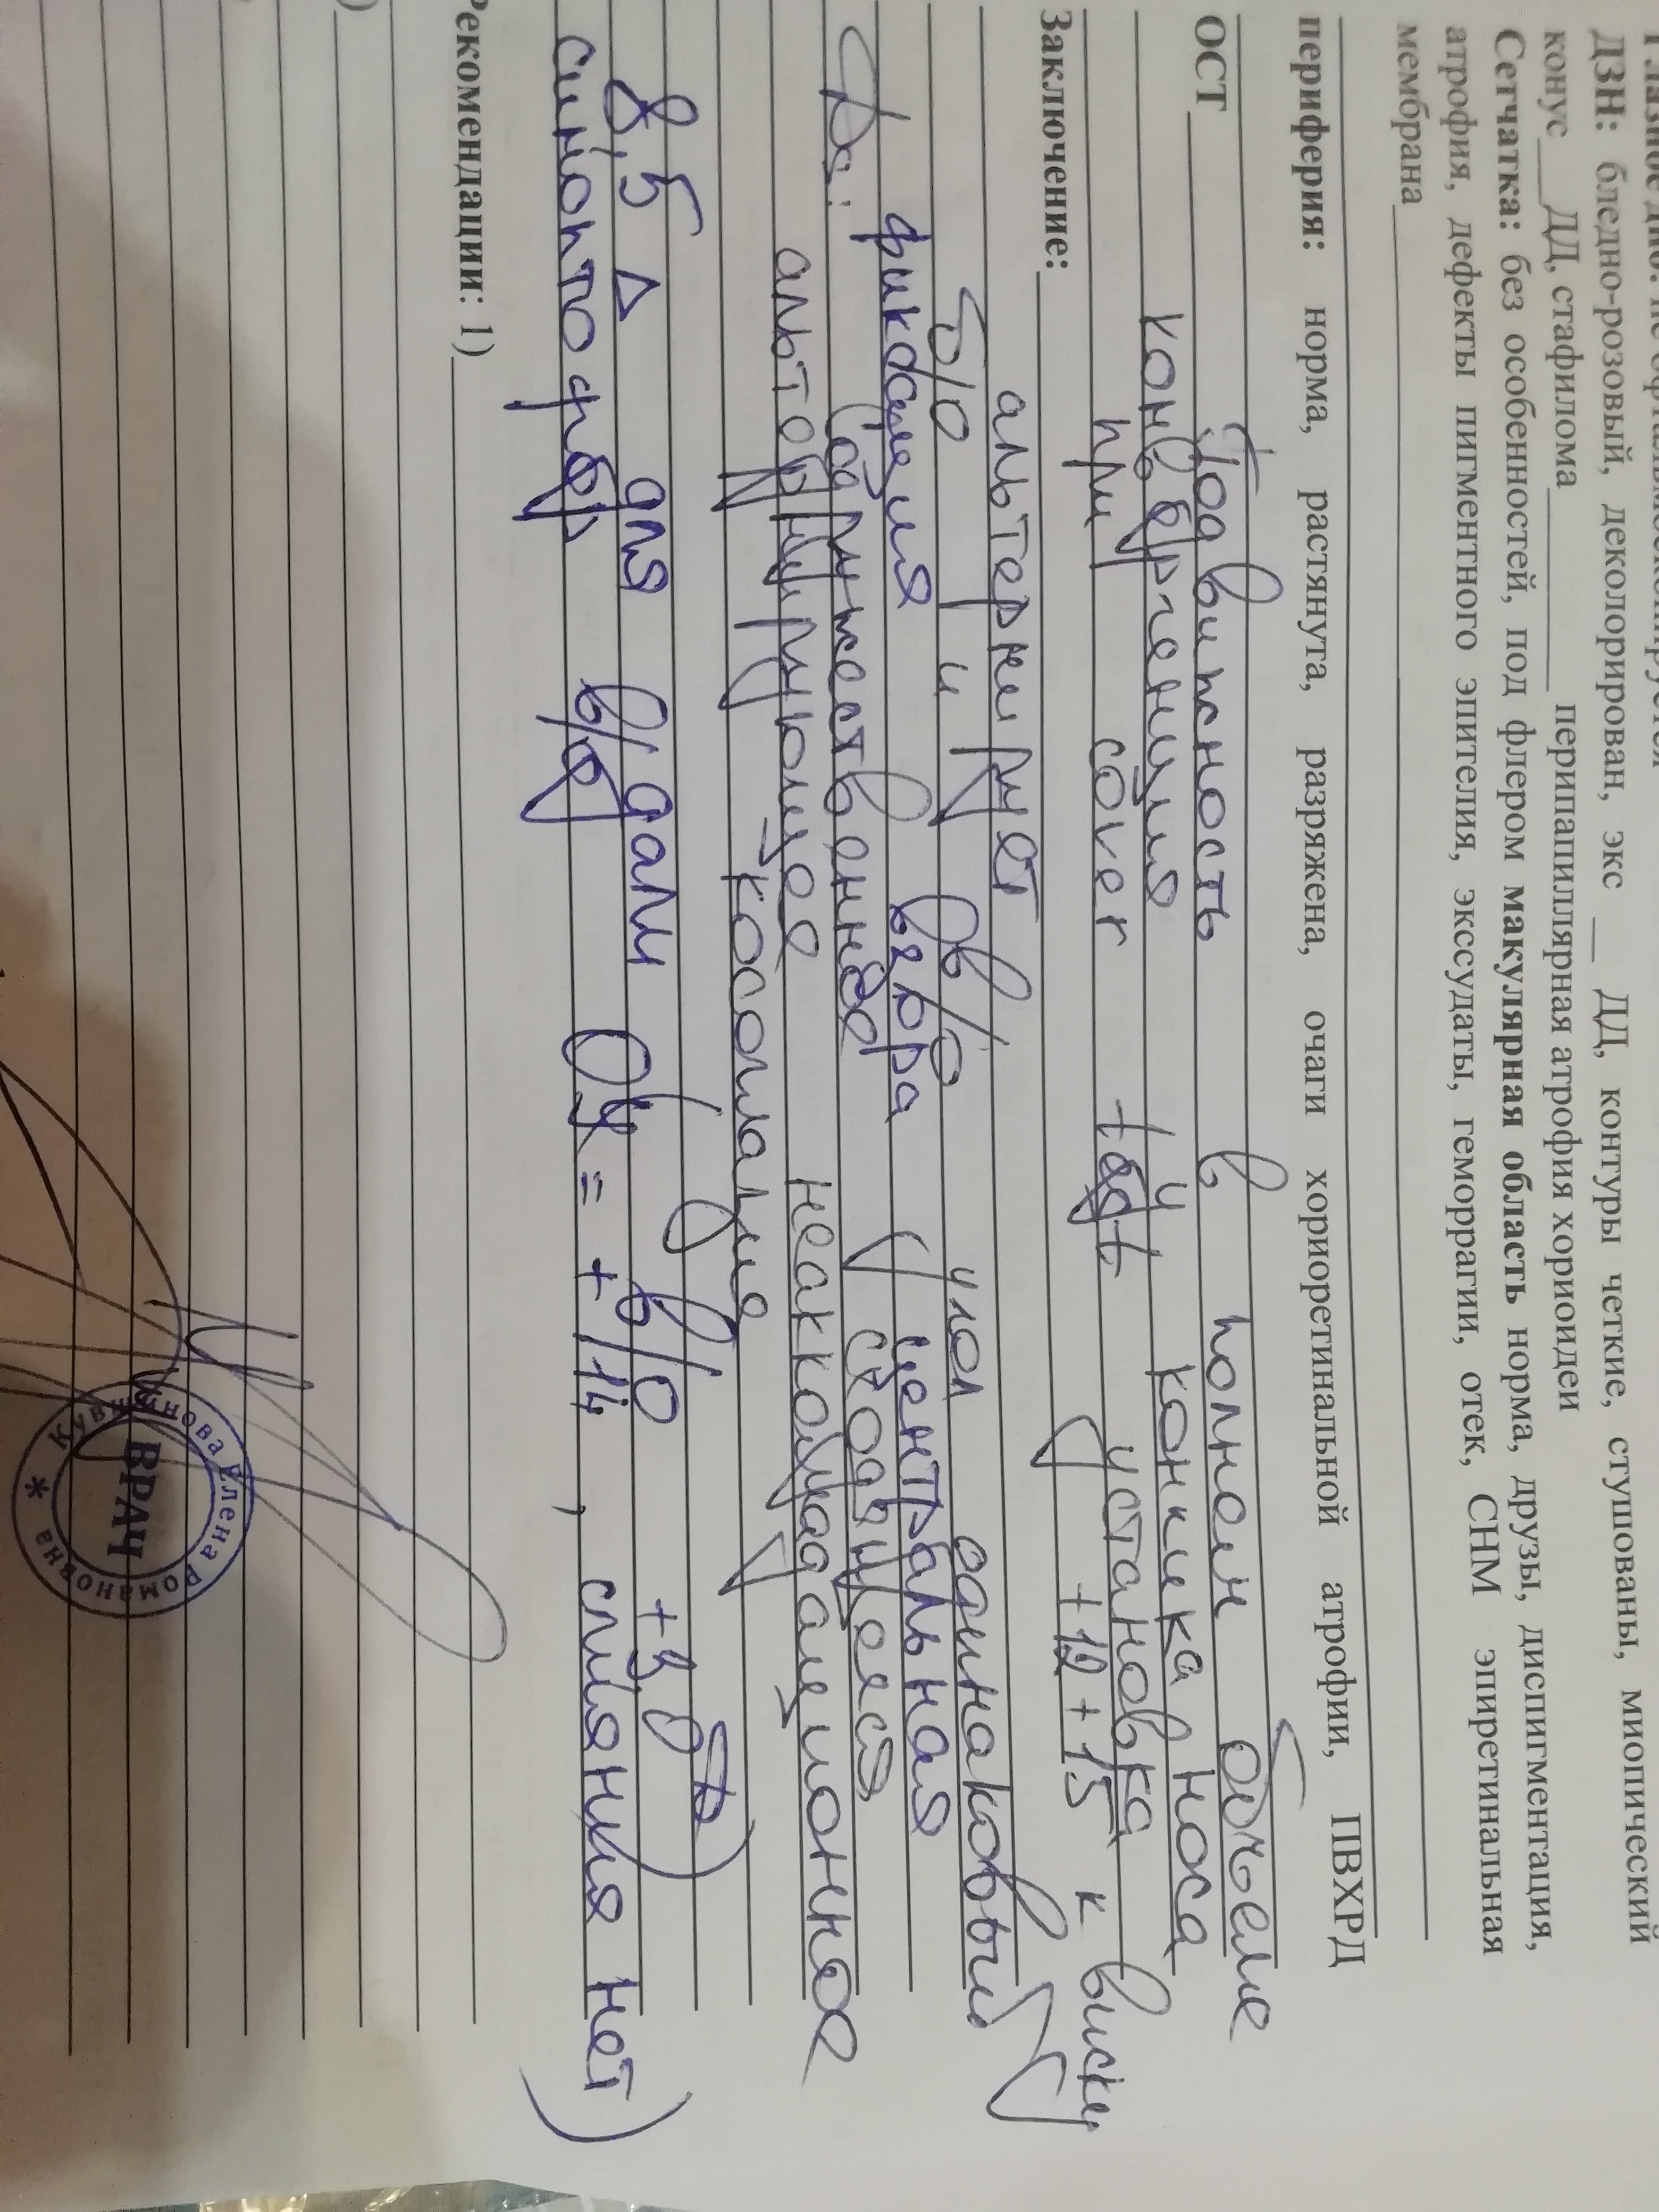 Глазное дно: не офтальмоскопируется
ДЗН: бледно-розовый, деколорирован, экс __ ДД, контуры четкие, стушованы, миопический
конус ___ДД, стафилома ________ перипапиллярная атрофия хориоидеи
Сетчатка: без особенностей, под флером макулярная область норма, друзы, диспигментация,
атрофия, дефекты пигментного эпителия, экссудаты, геморрагии, отек, СНМ эпиретинальная
мембрана
периферия: норма, растянута, разряжена, очаги хориоретинальной атрофии, ПВХРД
ОСТ
Подвижность в полном объеме
конвергенция у кончика носа
при cover test установка к виску
Заключение: +12 +15
альтернирует
б/о и в/о угол одинаковый
фиксация взора центральная
Ds: Содружественное сходящееся
альтернирующее неаккомодационное
косоглазие
8,5 Δ для в/дали б/о +3
синоптофор в/о ОУ = +14, слияния нет)
Рекомендации: 1)
Елена Романовна
ВРАЧ